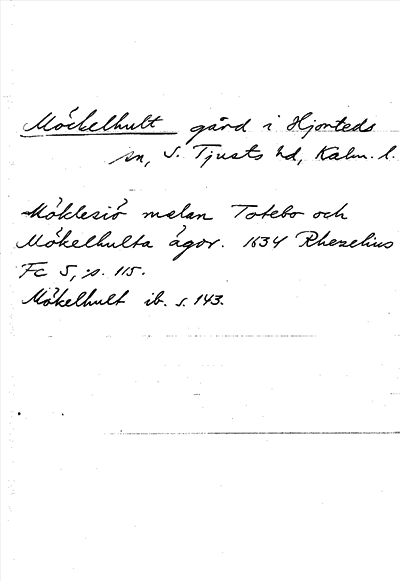 Möckelhult gård i Hjorteds
sn, S. Tjusts hd, Kalm. l.
Möklesiö melan Totebo och
Mökelhulta ägor. 1634 Rhezelius
Fc 5, s. 115.
Mökelhult ib. s. 143.